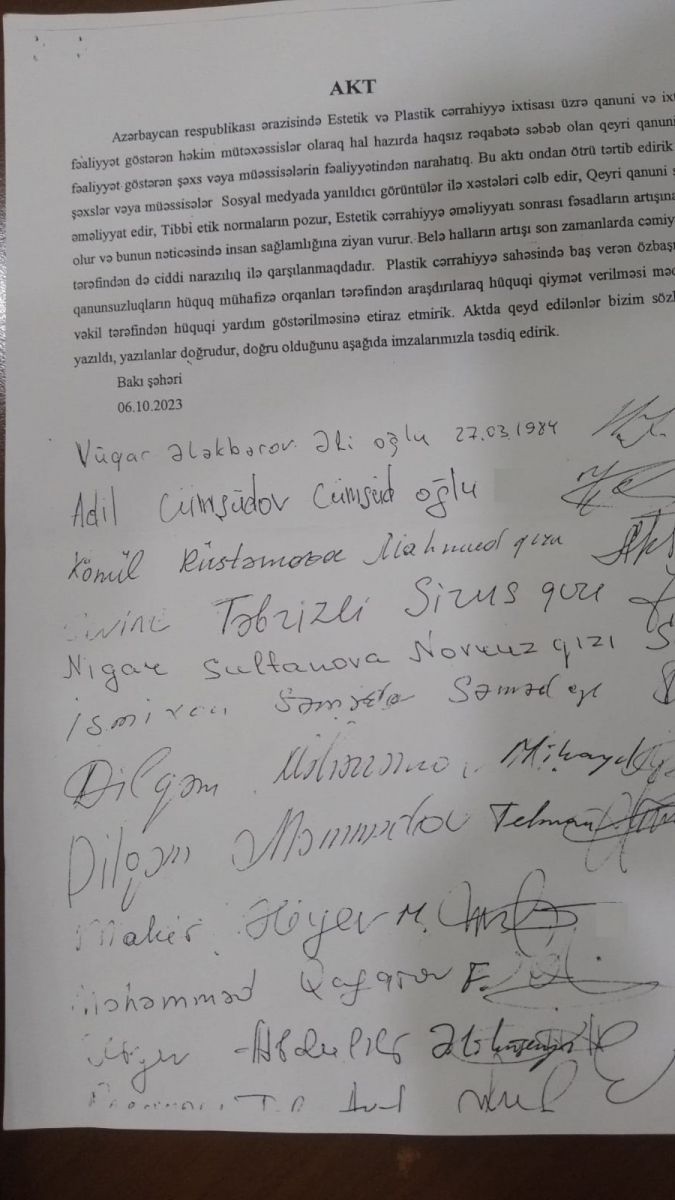 AKT
Azərbaycan respublikası ərazisində Estetik və Plastik cərrahiyyə ixtisası üzrə qanuni və ixt
fəaliyyət göstərən həkim mütəxəssislər olaraq hal hazırda haqsız rəqabətə səbəb olan qeyri qanuni
fəaliyyət göstərən şəxs vəya müəssisələrin fəaliyyətindən narahatıq. Bu aktı ondan ötrü tərtib edirik
şəxslər vəya müəssisələr Sosial medyada yanıldıcı görüntülər ilə xəstələri cəlb edir, Qeyri qanuni ş
əməliyyat edir, Tibbi etik normaların pozur, Estetik cərrahiyyə əməliyyatı sonrası fəsadların artışına
olur və bunun nəticəsində insan sağlamlığına ziyan vurur. Belə halların artışı son zamanlarda cəmiy
tərəfindən də ciddi narazılıq ilə qarşılanmaqdadır. Plastik cərrahiyyə sahəsində baş verən özbaşı
qanunsuzluqların hüquq mühafizə orqanları tərəfindən araşdırılaraq hüquqi qiymət verilməsi məq
vəkil tərəfindən hüquqi yardım göstərilməsinə etiraz etmirik. Aktda qeyd edilənlər bizim sözl
yazıldı, yazılanlar doğrudur, doğru olduğunu aşağıda imzalarımızla təsdiq edirik.
Bakı şəhəri
06.10.2023
Vüqar Ələkbərov Əli oğlu 27.03.1984
Adil Cümşüdov Cümşüd oğlu
Könül Rüstəmova Mahmud qızı
Təbrizli Sirus qızı
Nigar Sultanova Novruz qızı
Səməd
Dilqəm
Dilqəm Məmmədov Telman
Mahir Əliyev M.
Məhəmməd Qafarov F.